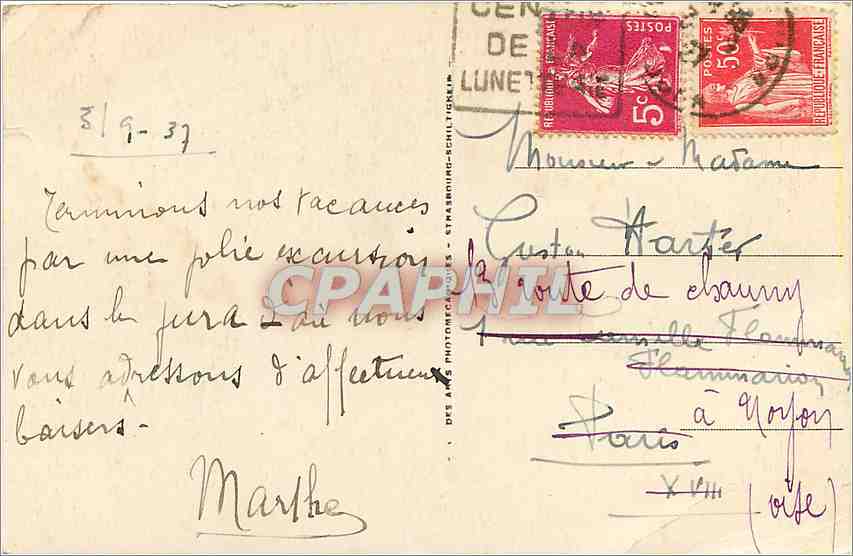 3/9-37
Terminons nos vacances
par une jolie excursion
dans le Jura d'où nous
vous adressons d'affectueux
baisers-
Marthe
DES ARTS PHOTOMECANIQUES - STRASBOURG-SCHILTIGHEIM
DE
LUNET
REPUBLIQUE FRANÇAISE
POSTES
5c
POSTES
50c
REPUBLIQUE FRANÇAISE
JURA
Monsieur Madame
Gustav Harter
route de chauny
1 rue Camille Flammarion
Flammarion
à Noyon
Paris
XVIII
(oise)
CPAPHIL